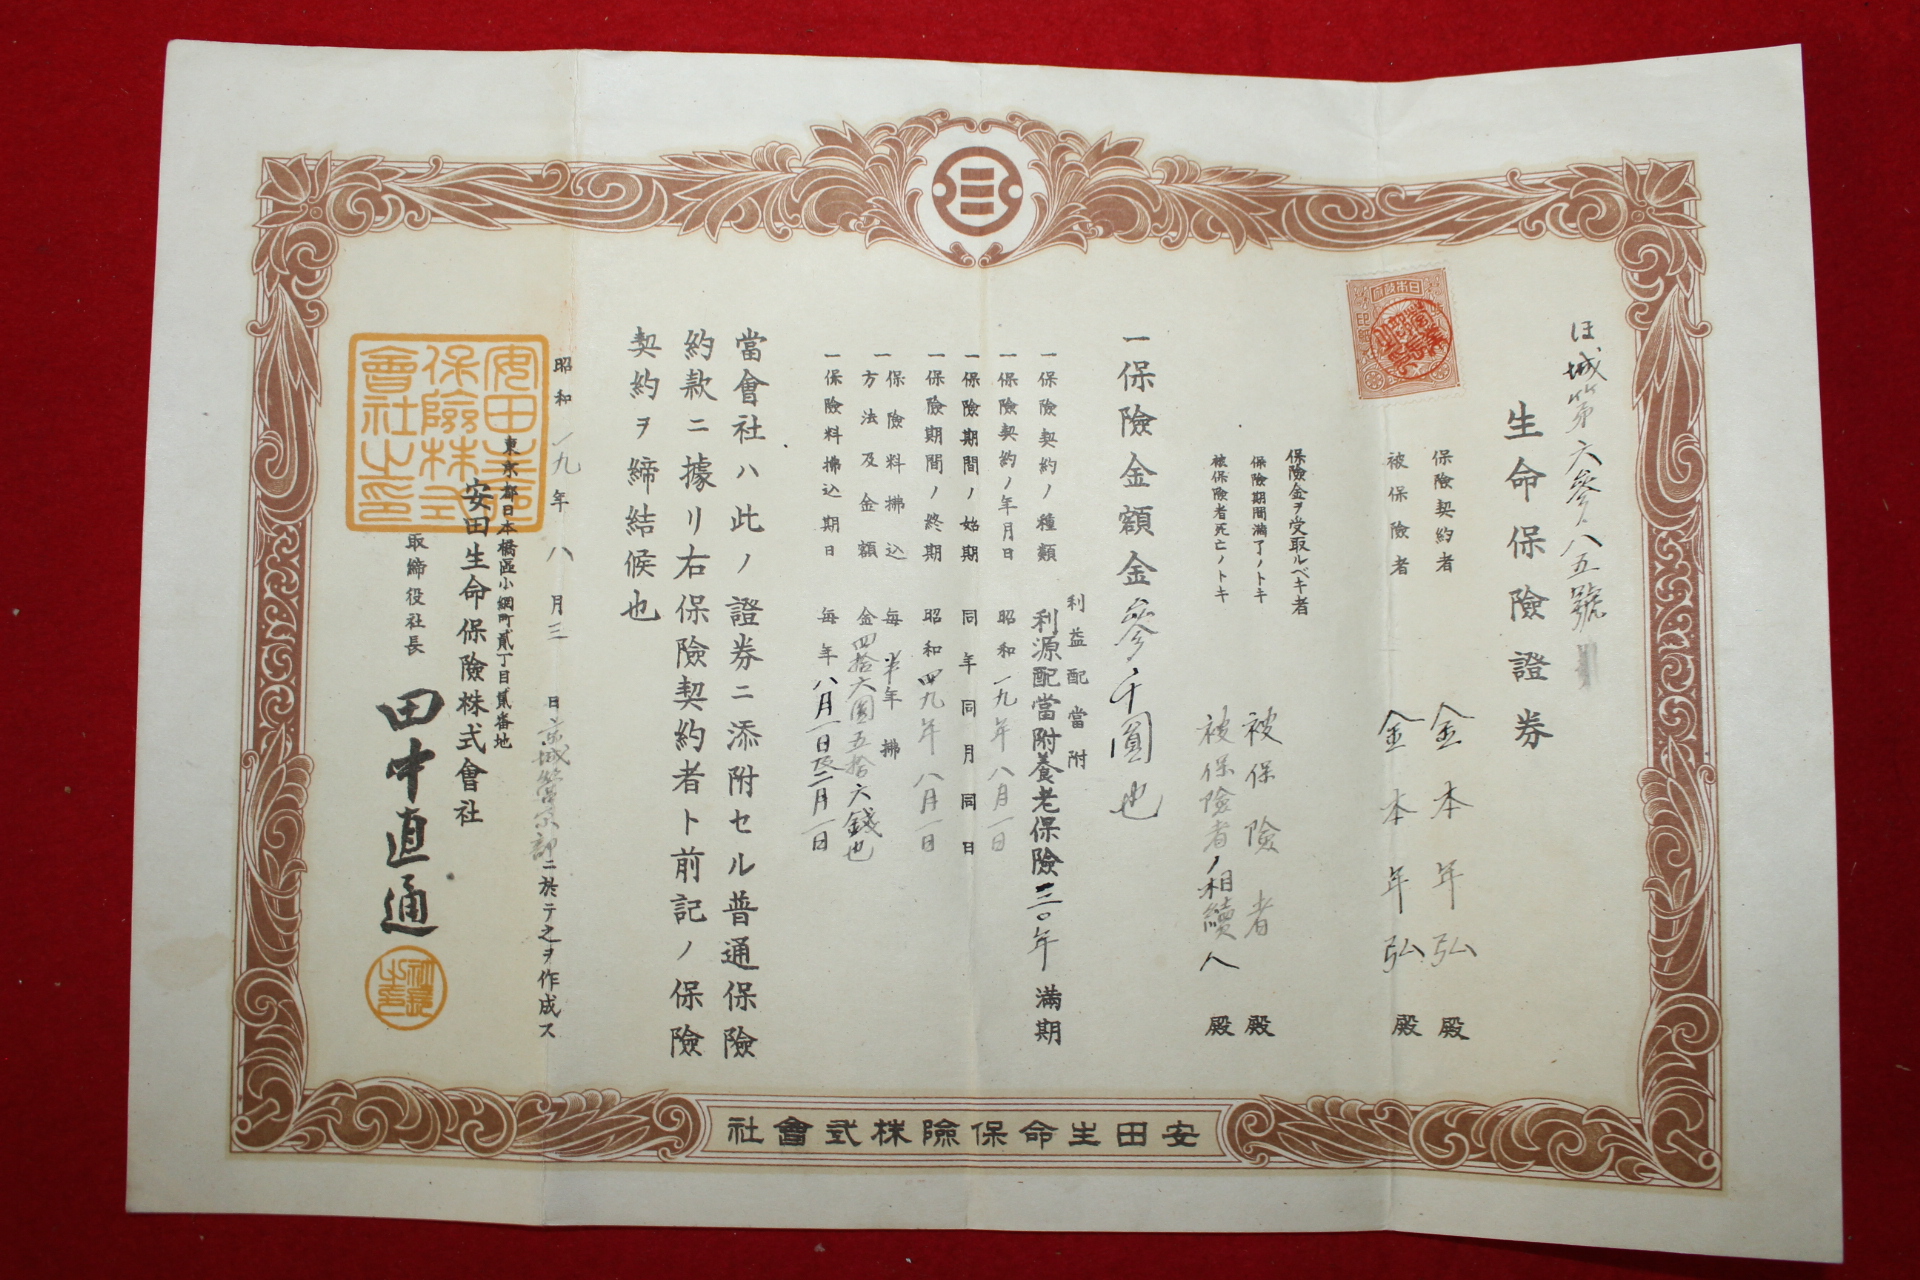 ほ城第六参八五號
生命保險證券
保險契約者 金本年弘殿
被保險者 金本年弘殿
保險金ヲ受取ルベキ者
保險期間滿了ノトキ 被保險者殿
被保險者死亡ノトキ 被保險者ノ相續人殿
一保險金額金參千圓也
利益配當附
一保險契約ノ種類 利源配當附養老保險三〇年滿期
一保險契約ノ年月日 昭和一九年八月一日
一保險期間ノ始期 同年同月同日
一保險期間ノ終期 昭和四九年八月一日
一保險料拂込 每半年拂
方法及金額 金四拾六圓五拾六錢也
一保險料拂込期日 每年八月一日及二月一日
當會社ハ此ノ證券ニ添附セル普通保險
約款ニ據リ右保險契約者ト前記ノ保險
契約ヲ締結候也
昭和一九年八月三日京城營業部ニ於テ之ヲ作成ス
東京都日本橋區小網町貳丁目貳番地
安田生命保險株式會社
取締役社長 田中直通
安田生命
保險株式
會社之印
社長之印
日本政府
印紙
安田生命保險株式會社